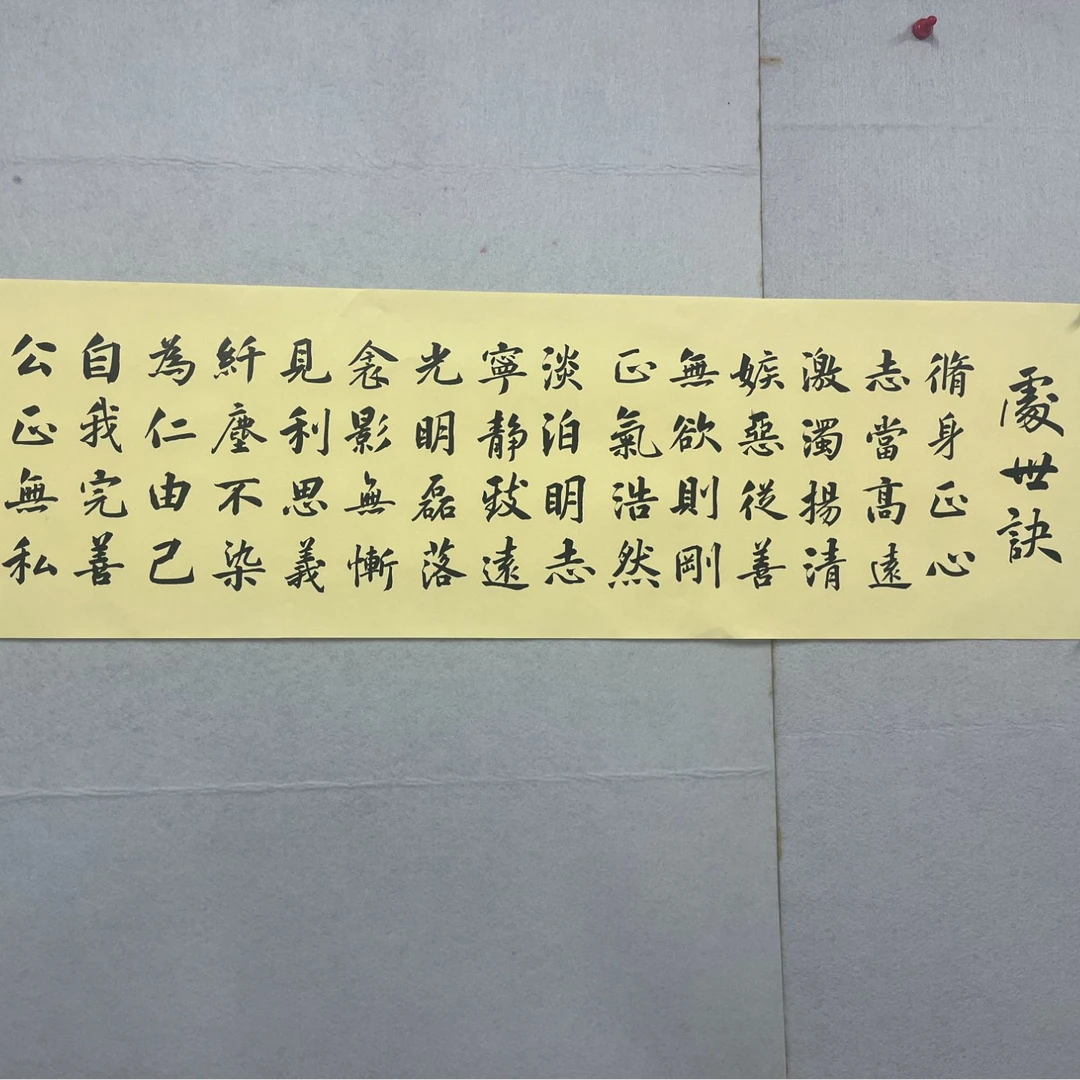 處世訣
脩身正心
志當高遠
激濁揚清
嫉惡從善
無欲則剛
正氣浩然
淡泊明志
寧靜致遠
光明磊落
衾影無慚
見利思義
纤塵不染
為仁由己
自我完善
公正無私